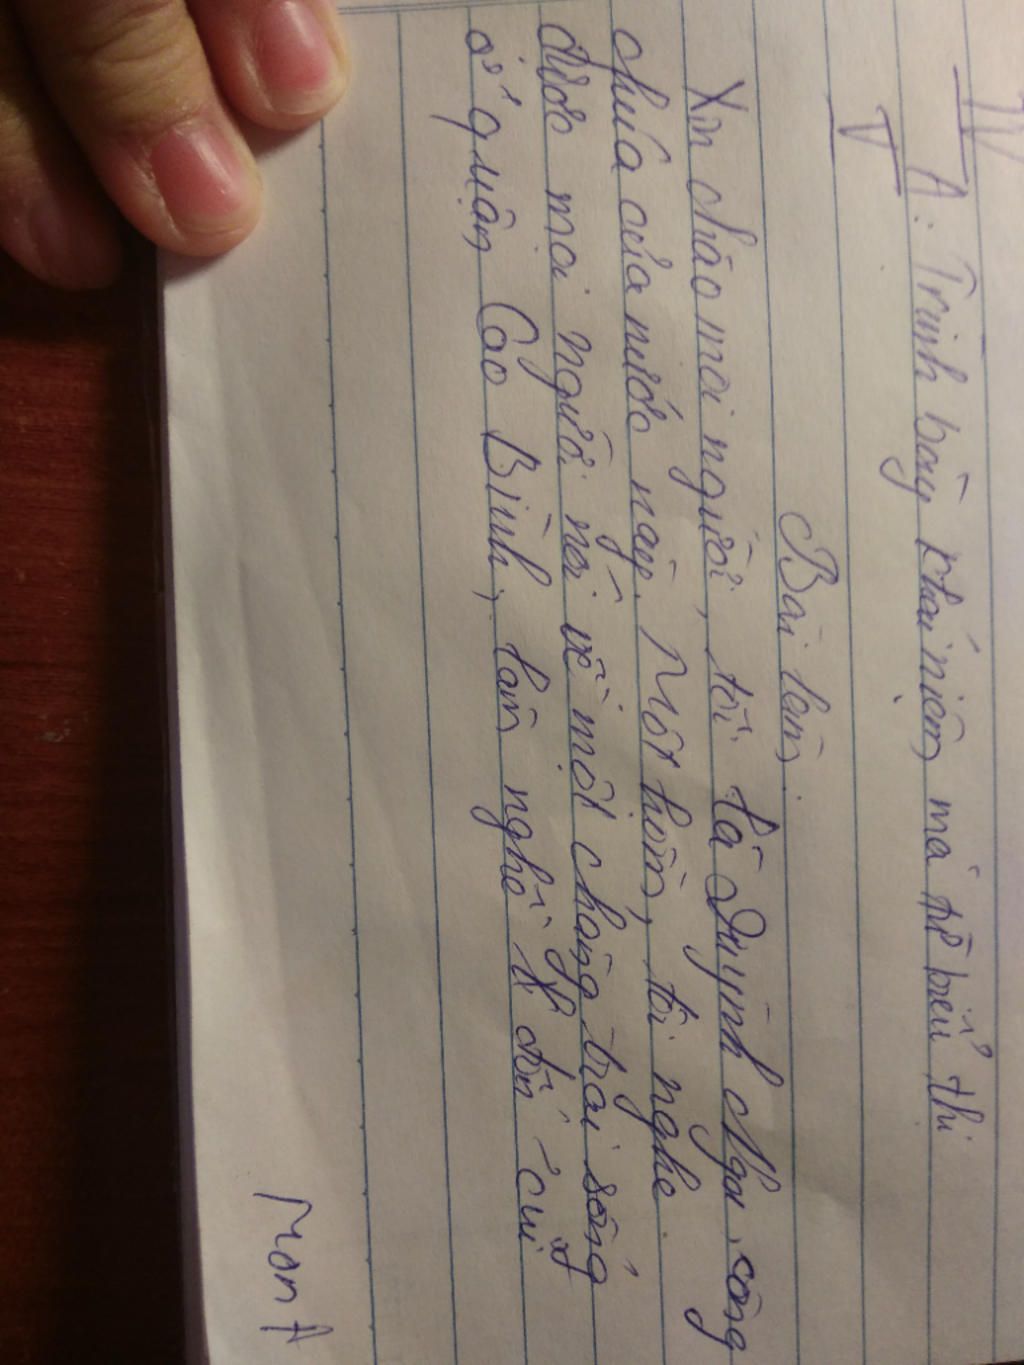 IV
A. Trình bày khái niệm mà từ biểu thị
V
Bài làm:
Xin chào mọi người, tôi là Quỳnh Nga, công
chúa của nước này. Một hôm, tôi nghe
được mọi người nói về một chàng trai sống
ở quận Cao Bình, làm nghề đốn củi
Mon A